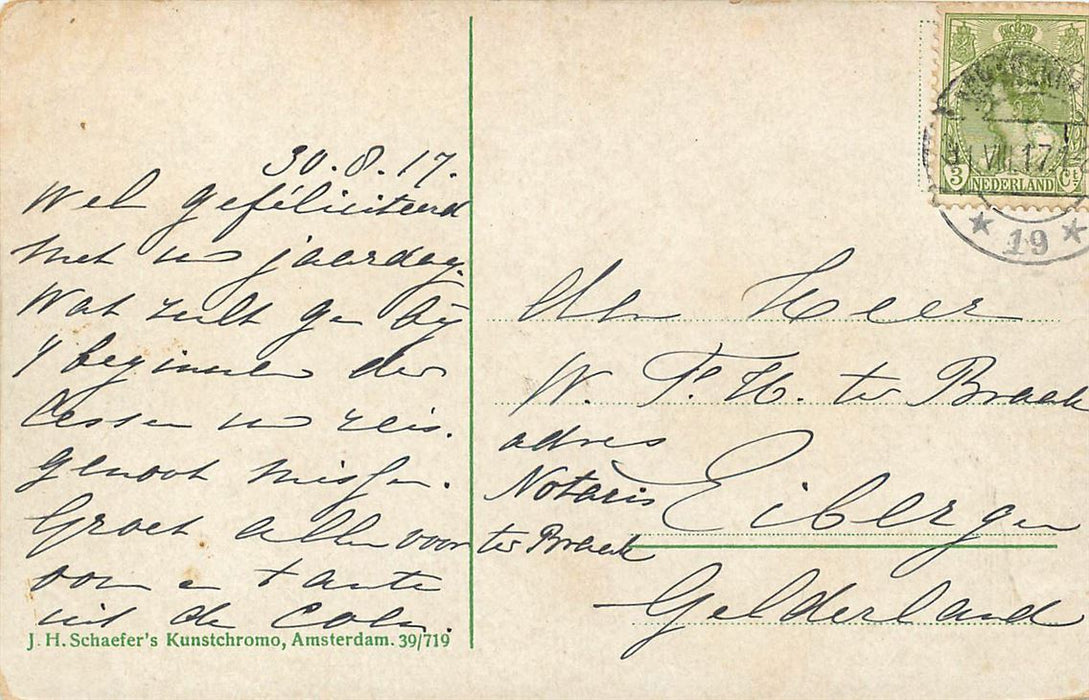 30.8.17.
Wel geféliciteerd
met uw jaardag.
Wat zult ge bij
't beginnen der
lessen uw reis.
genoot missen.
Groet allen voor
oom en tante
uit de
J. H. Schaefer's Kunstchromo, Amsterdam. 39/719
3 NEDERLAND Ct
VIII 17
19
Den Heer
W. F. H. te Braak
adres
Notaris
te Braak
Eibergen
Gelderland